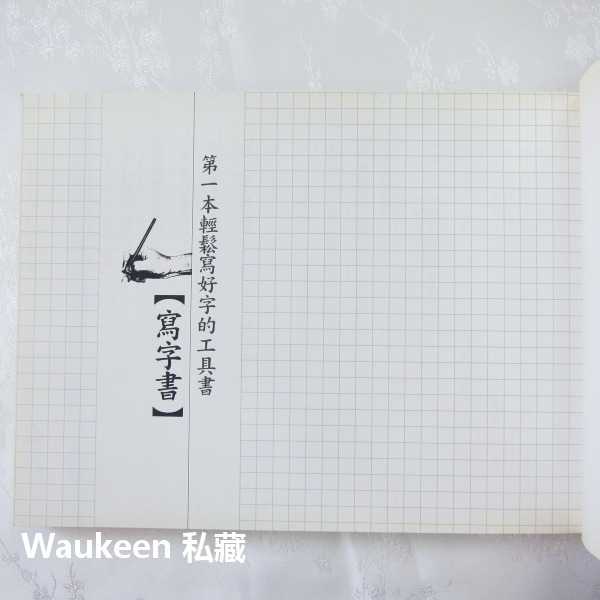 第一本輕鬆寫好字的工具書
【寫字書】
Waukeen 私藏